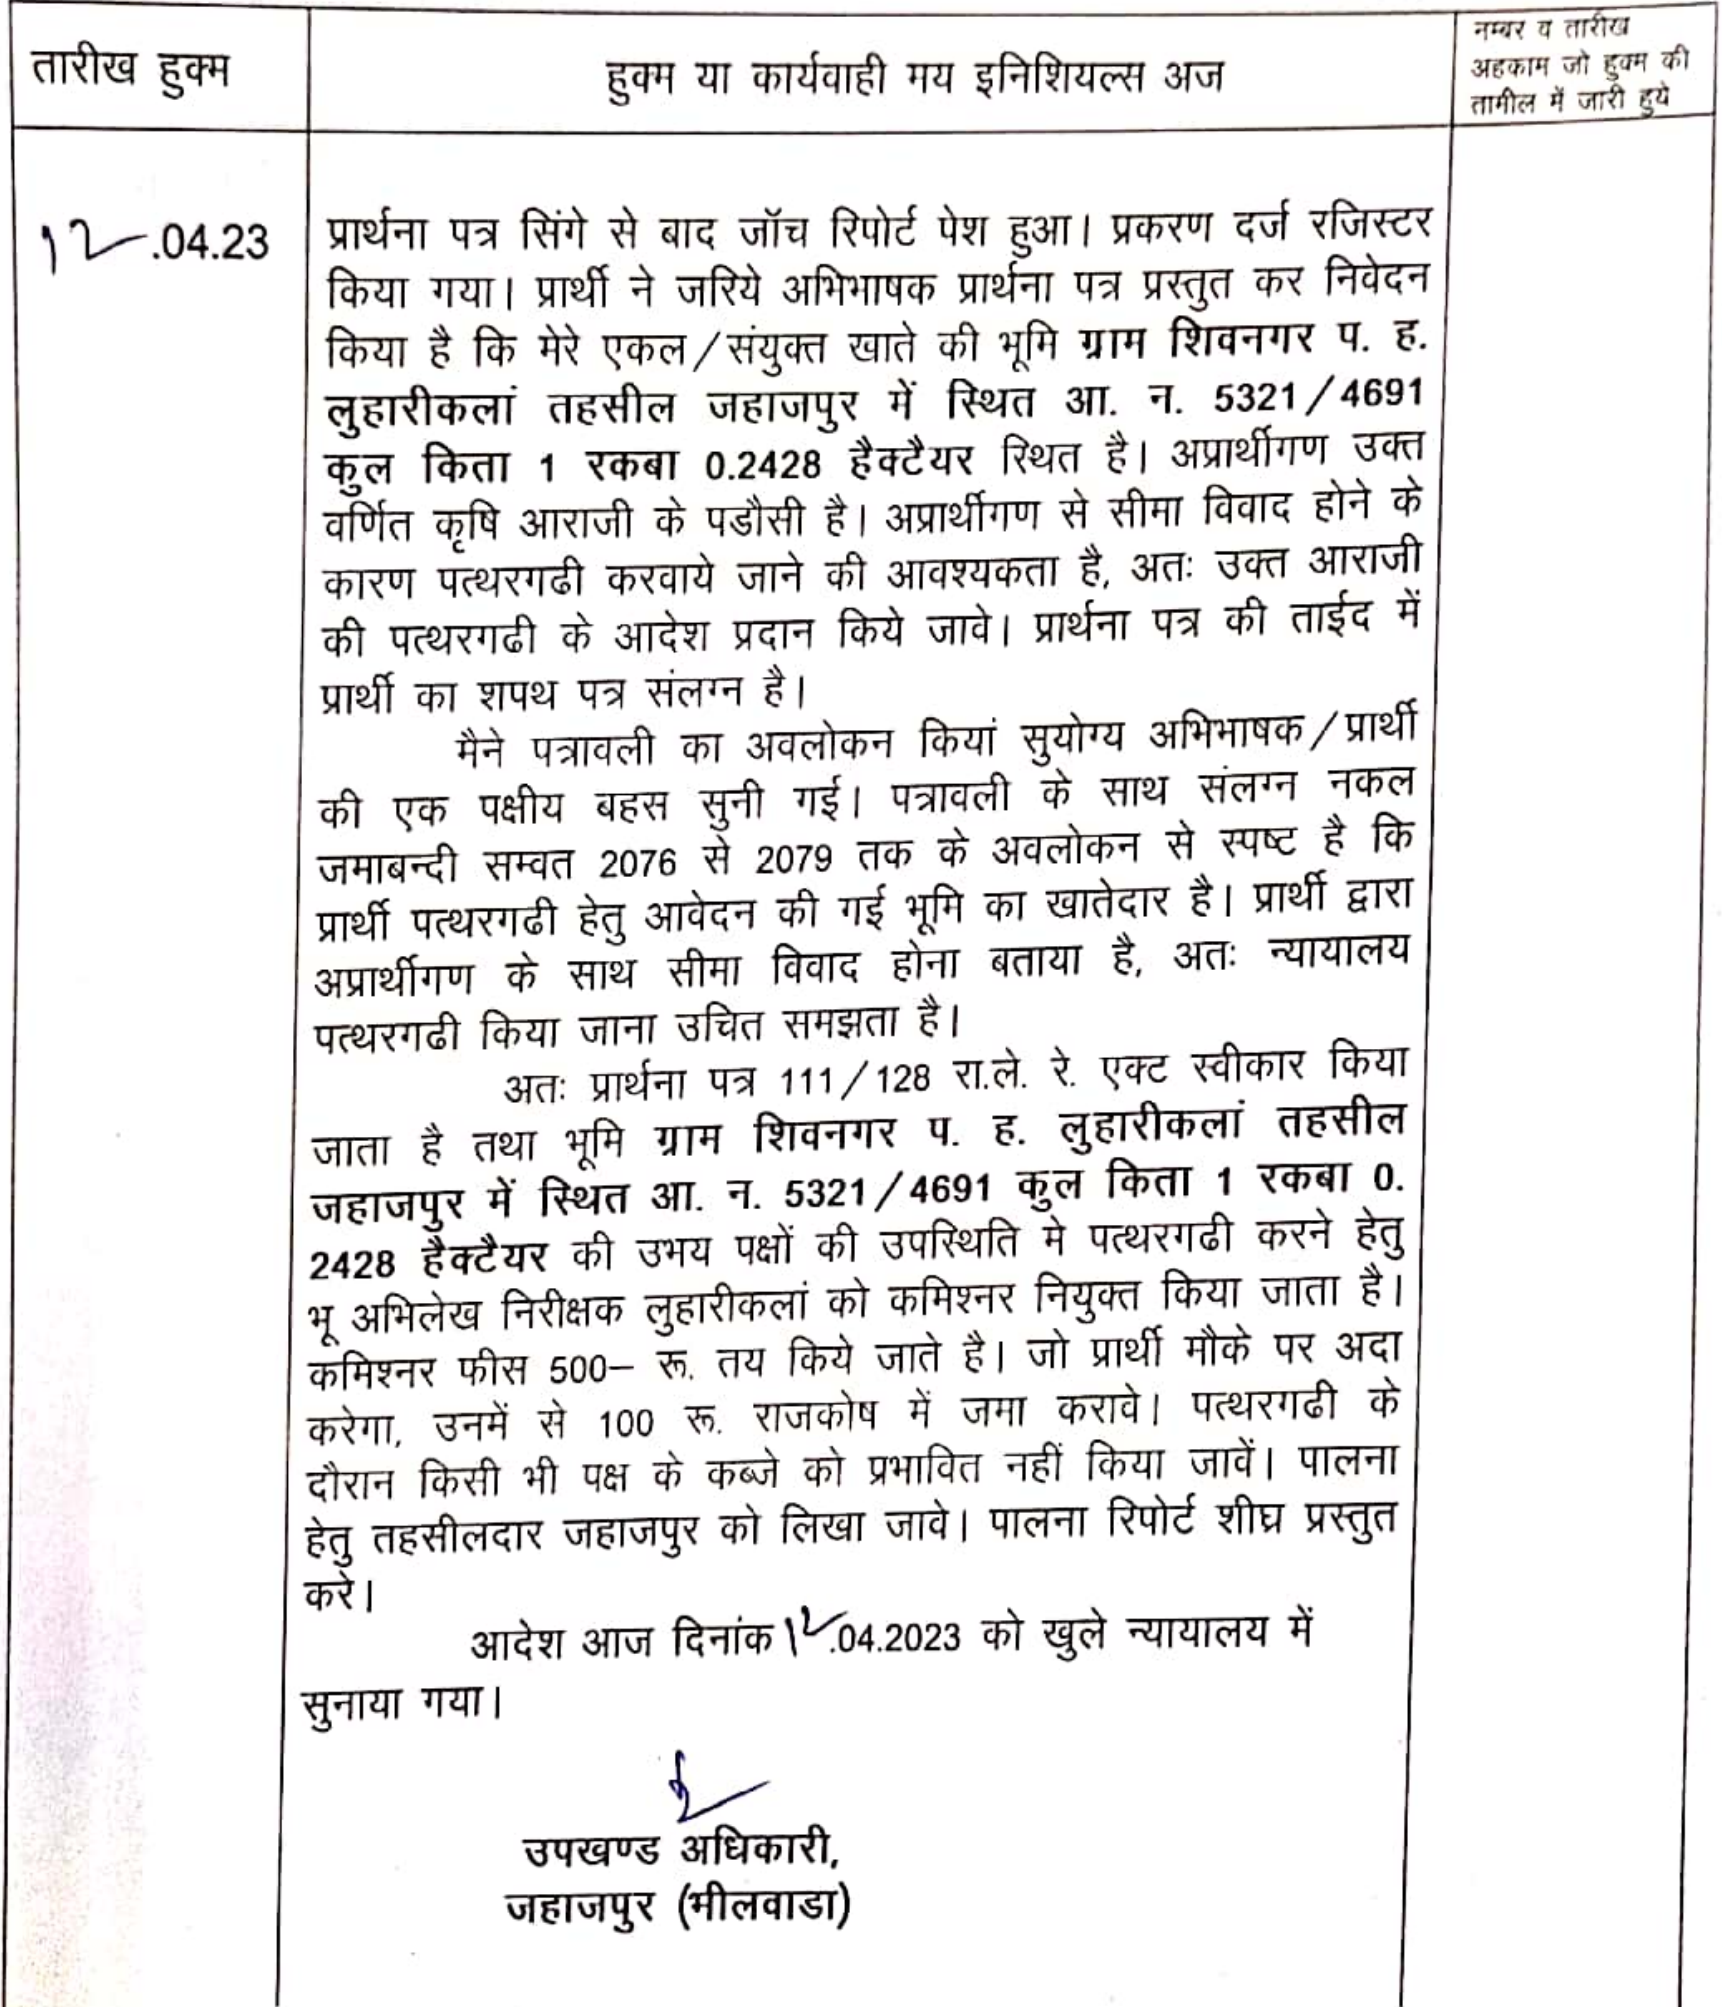 तारीख हुक्म
हुक्म या कार्यवाही मय इनिशियल्स अज
नम्बर व तारीख
अहकाम जो हुक्म की
तामील में जारी हुये
12.04.23
प्रार्थना पत्र सिंगे से बाद जॉच रिपोर्ट पेश हुआ। प्रकरण दर्ज रजिस्टर
किया गया। प्रार्थी ने जरिये अभिभाषक प्रार्थना पत्र प्रस्तुत कर निवेदन
किया है कि मेरे एकल/संयुक्त खाते की भूमि ग्राम शिवनगर प. ह.
लुहारीकलां तहसील जहाजपुर में स्थित आ. न. 5321/4691
कुल किता 1 रकबा 0.2428 हैक्टैयर स्थित है। अप्रार्थीगण उक्त
वर्णित कृषि आराजी के पडौसी है। अप्रार्थीगण से सीमा विवाद होने के
कारण पत्थरगढी करवाये जाने की आवश्यकता है, अतः उक्त आराजी
की पत्थरगढी के आदेश प्रदान किये जावे। प्रार्थना पत्र की ताईद में
प्रार्थी का शपथ पत्र संलग्न है।
मैने पत्रावली का अवलोकन कियां सुयोग्य अभिभाषक/प्रार्थी
की एक पक्षीय बहस सुनी गई। पत्रावली के साथ संलग्न नकल
जमाबन्दी सम्वत 2076 से 2079 तक के अवलोकन से स्पष्ट है कि
प्रार्थी पत्थरगढी हेतु आवेदन की गई भूमि का खातेदार है। प्रार्थी द्वारा
अप्रार्थीगण के साथ सीमा विवाद होना बताया है, अतः न्यायालय
पत्थरगढी किया जाना उचित समझता है।
अतः प्रार्थना पत्र 111/128 रा.ले. रे. एक्ट स्वीकार किया
जाता है तथा भूमि ग्राम शिवनगर प. ह. लुहारीकलां तहसील
जहाजपुर में स्थित आ. न. 5321/4691 कुल किता 1 रकबा 0.
2428 हैक्टैयर की उभय पक्षों की उपस्थिति मे पत्थरगढी करने हेतु
भू अभिलेख निरीक्षक लुहारीकलां को कमिश्नर नियुक्त किया जाता है।
कमिश्नर फीस 500– रू. तय किये जाते है। जो प्रार्थी मौके पर अदा
करेगा, उनमें से 100 रू. राजकोष में जमा करावे। पत्थरगढी के
दौरान किसी भी पक्ष के कब्जे को प्रभावित नहीं किया जावें। पालना
हेतु तहसीलदार जहाजपुर को लिखा जावे। पालना रिपोर्ट शीघ्र प्रस्तुत
करे।
आदेश आज दिनांक 12.04.2023 को खुले न्यायालय में
सुनाया गया।
उपखण्ड अधिकारी,
जहाजपुर (भीलवाडा)